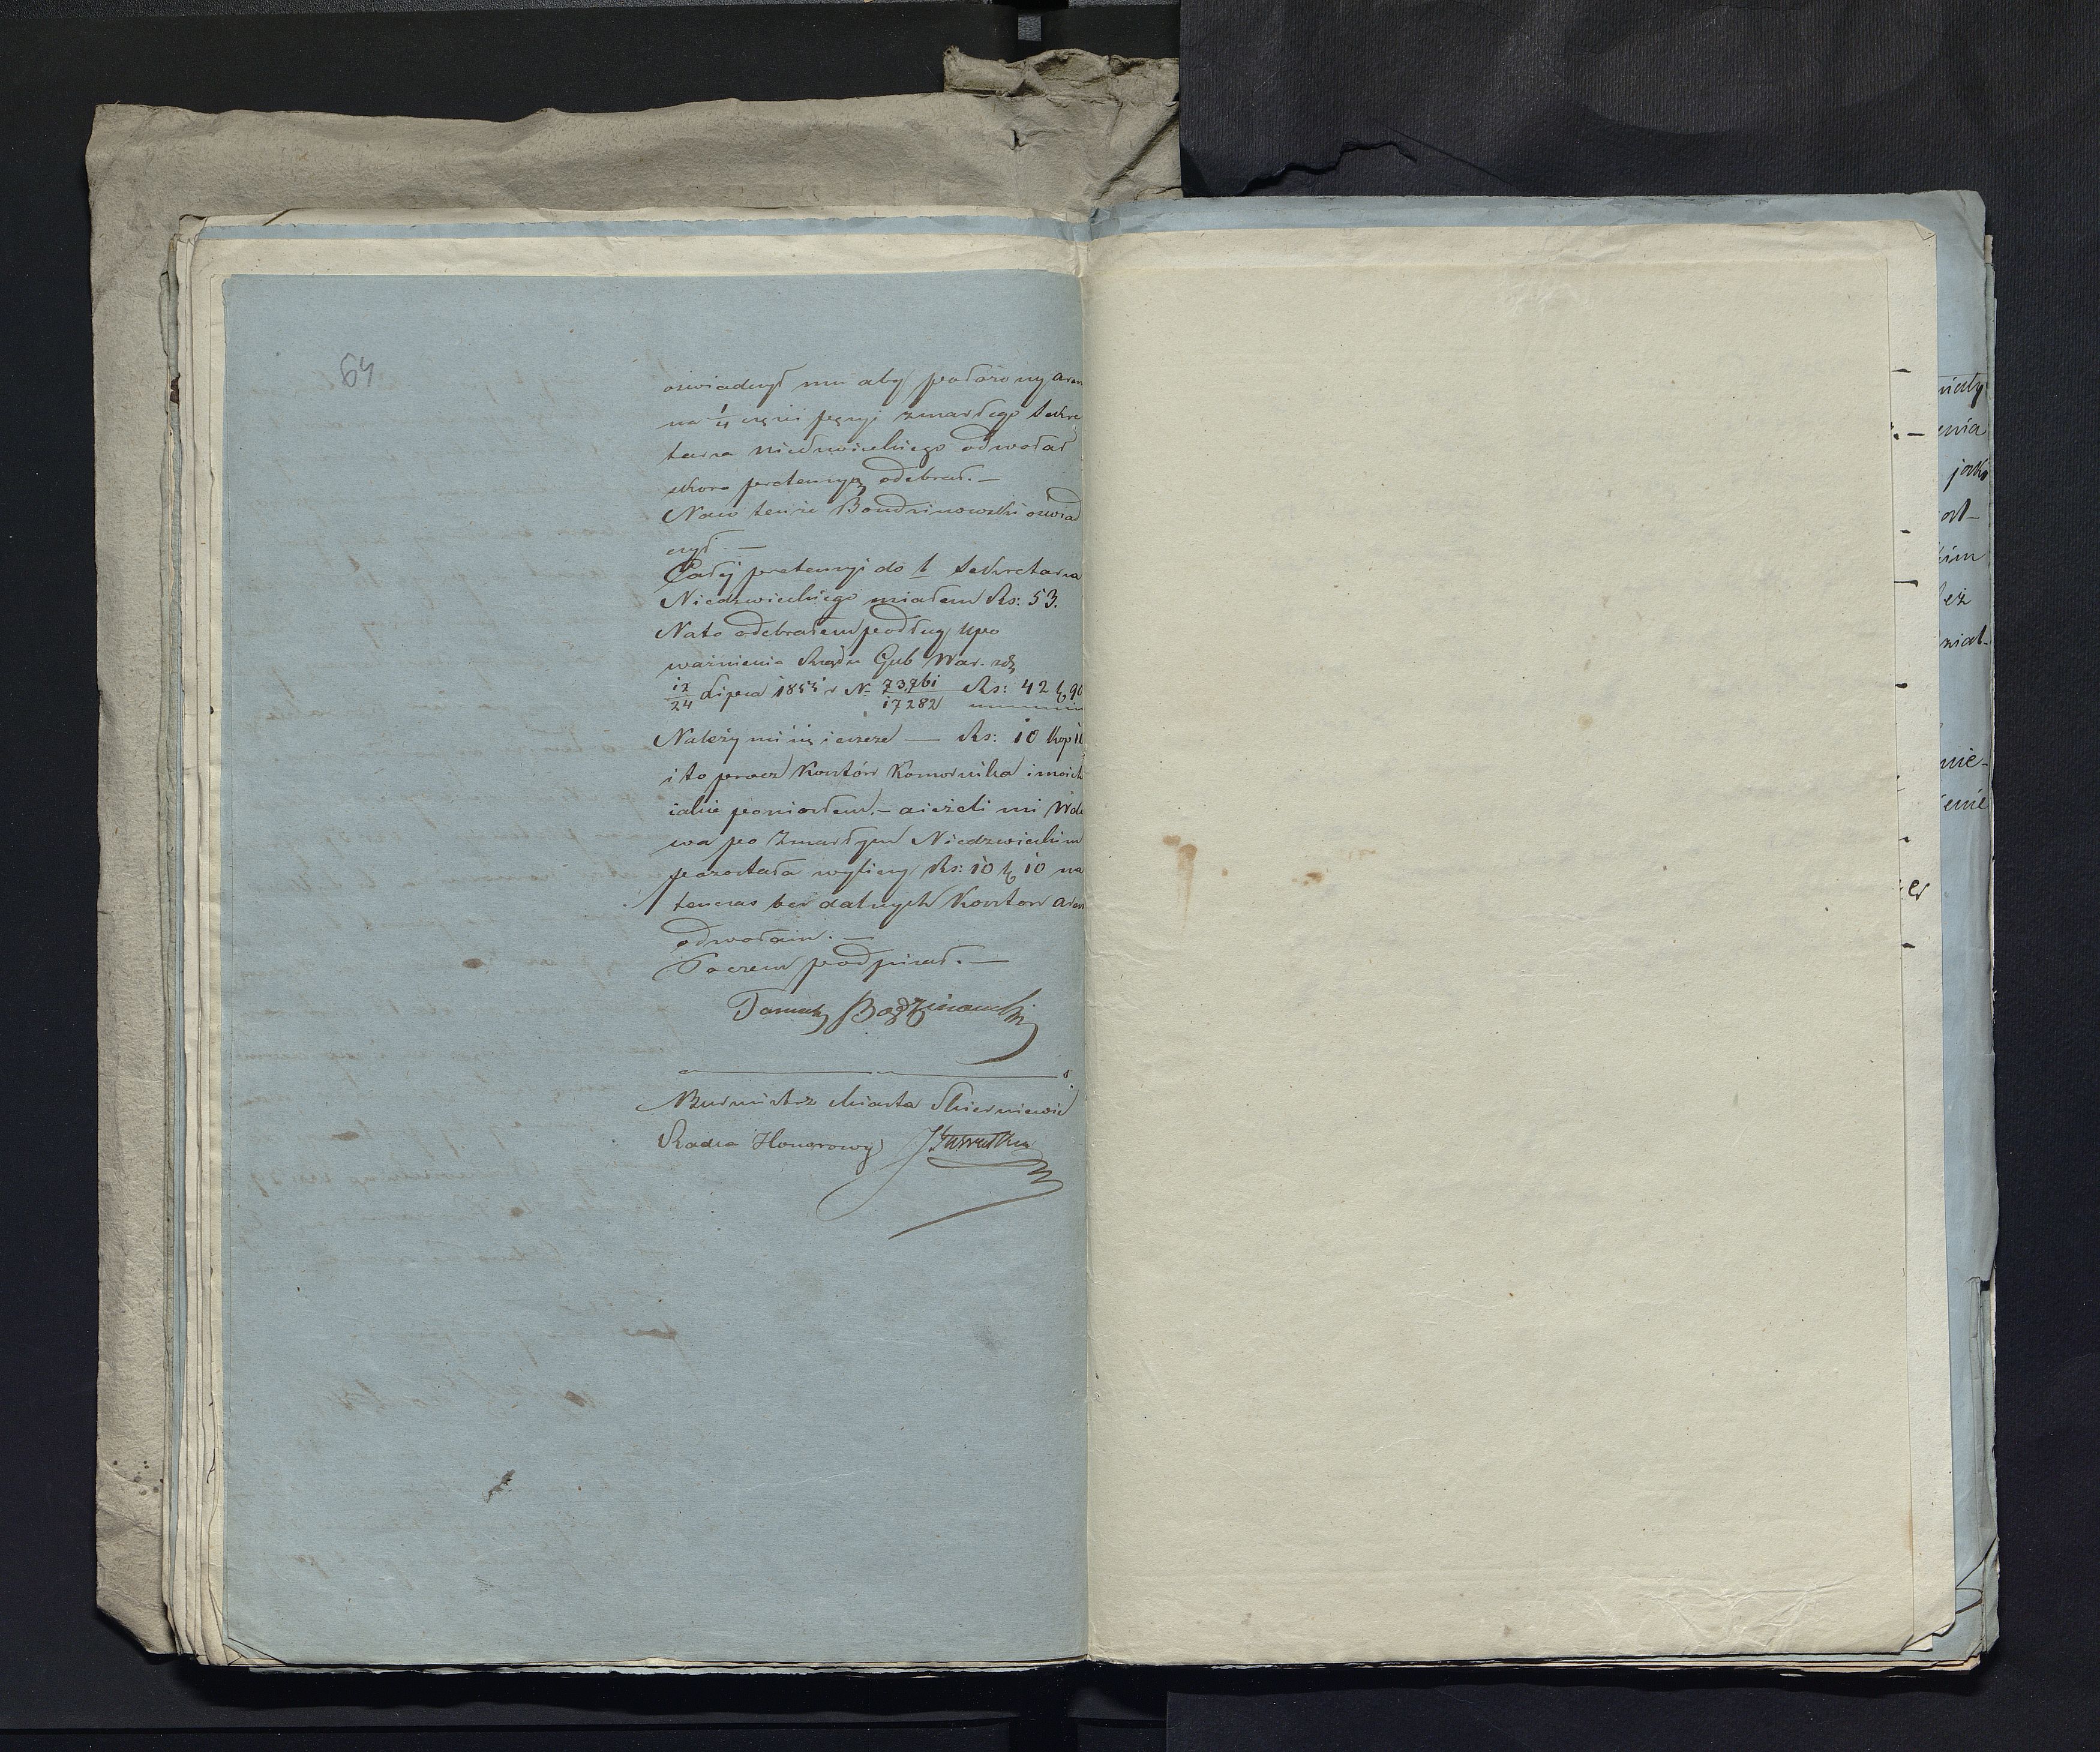 64
oswiadczył mu aby położony ares
na 1/4 części pęsyi zmarłego Sekre
tarza Niedzwieckiego odwołał
skoro pretensyą odebrał. —
Na co tenże Bondzinowski oświad
czył. —
Całej pretensyi do ś Sekretarza
Niedzwieckiego miałem Rs: 53.
Na to odebrałem podług upo
ważnienia Rządu Gub War. z dź
12/24 Lipca 1855 r N. 73761/17282 Rs: 42 k 90
Należy mi się ieszcze — Rs: 10 kop 10
i to procz Kosztów Komornika i moich
iakie poniosłem. — a ieżeli mi Wdo
wa po Zmarłym Niedzwieckim
pozostała wyliczy Rs: 10 k 10 na
tenczas bez dalszych Kosztow ares
odwołam. —
Poczem podpisał. —
Tomasz Bądzinowski
Burmistrz Miasta Skierniewic
Radca Honorowy
nialy
enia
jako
ost-
kim
też
nie-
enie